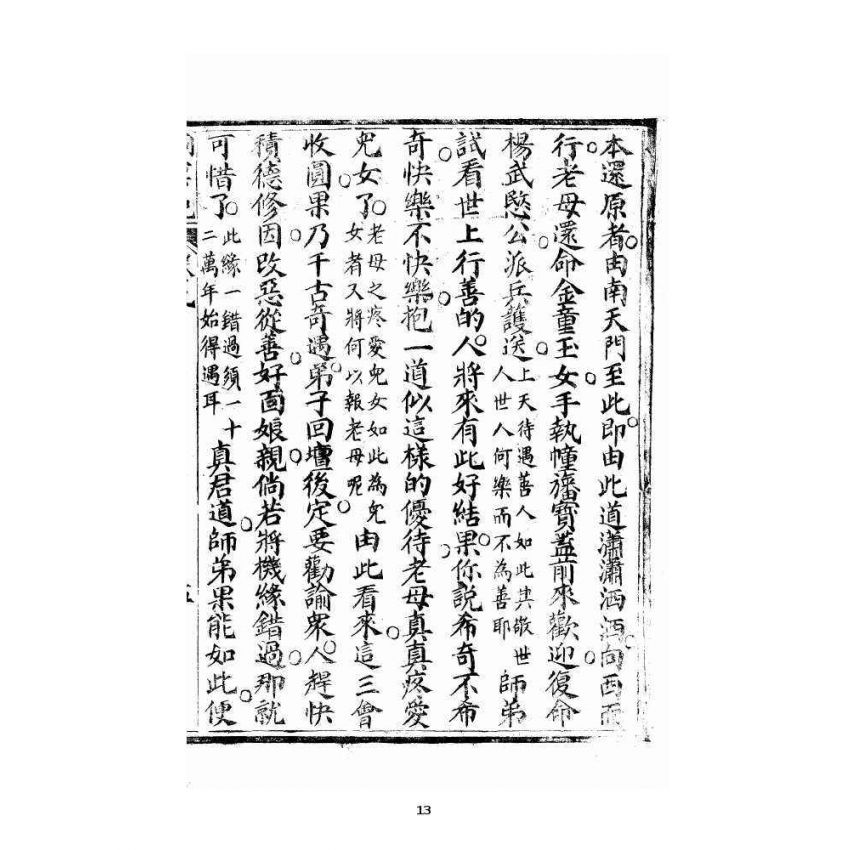 本還原者由南天門至此即由此道瀟瀟洒洒向西而
行老母還命金童玉女手執幢旛寶蓋前來歡迎復命
楊武愍公派兵護送上天待遇善人如此其敬世人世人何樂而不為善耶師弟
試看世上行善的人將來有此好結果你說希奇不希
奇快樂不快樂抱一道似這樣的優待老母真真疼愛
兒女了老母之疼愛兒女如此為兒女者又將何以報老母呢由此看來這三曾
收圓果乃千古奇遇弟子回壇後定要勸諭衆人趕快
積德修因改惡從善好面娘親倘若將機緣錯過那就
可惜了此緣一錯過須一十二萬年始得遇耳真君道師弟果能如此便
五
13